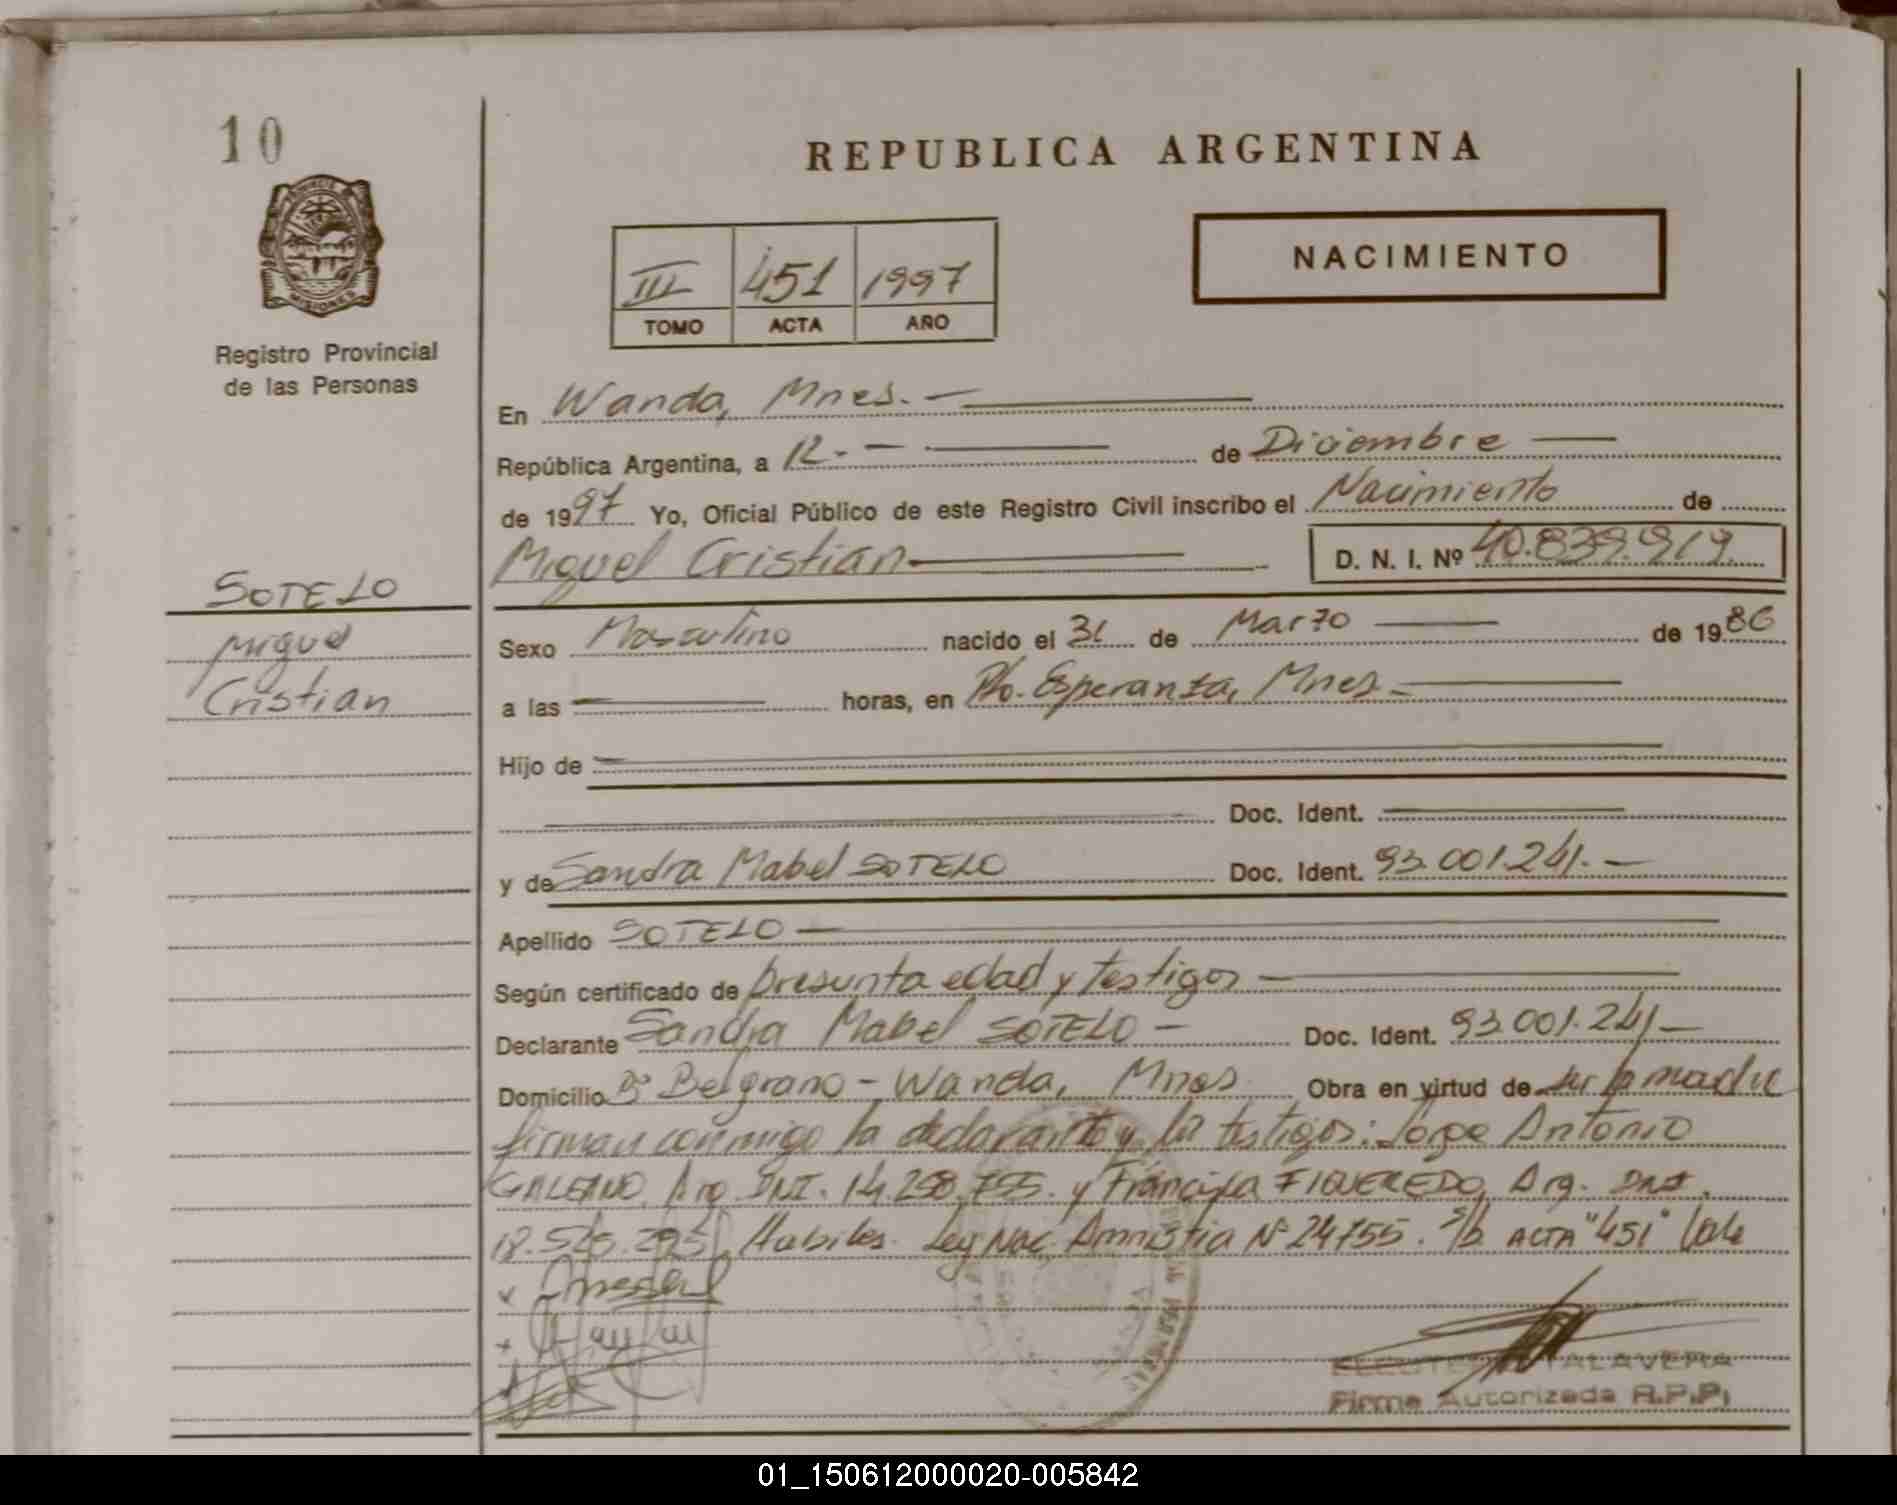 10
REPUBLICA ARGENTINA
PROVINCIA DE MISIONES
NACIMIENTO
III 451 1997
TOMO ACTA AÑO
Registro Provincial
de las Personas
En Wanda, Mnes.-
República Argentina, a 12.- de Diciembre
de 1997 Yo, Oficial Público de este Registro Civil inscribo el Nacimiento de
Miguel Cristian D. N. I. Nº 40.839.919.
SOTELO
Miguel
Cristian
Sexo Masculino nacido el 31 de Marzo de 1986
a las horas, en Pto. Esperanza, Mnes.-
Hijo de
Doc. Ident.
y de Sandra Mabel SOTELO Doc. Ident. 93.001.241.-
Apellido SOTELO -
Según certificado de presunta edad y testigos -
Declarante Sandra Mabel SOTELO - Doc. Ident. 93.001.241-
Domicilio Bº Belgrano - Wanda, Mnes. Obra en virtud de ser la madre
firman conmigo la declarante y los testigos: Jorge Antonio
GALEANO, Arg. DNI. 14.298.755. y Francisca FIGUEREDO, Arg. DNI.
18.525. Habiles. Ley Nac. Amnistia Nº 24755. s/b ACTA "451" Vale
x
x
TALAVERA
Firma Autorizada R.P.P.
01_150612000020-005842